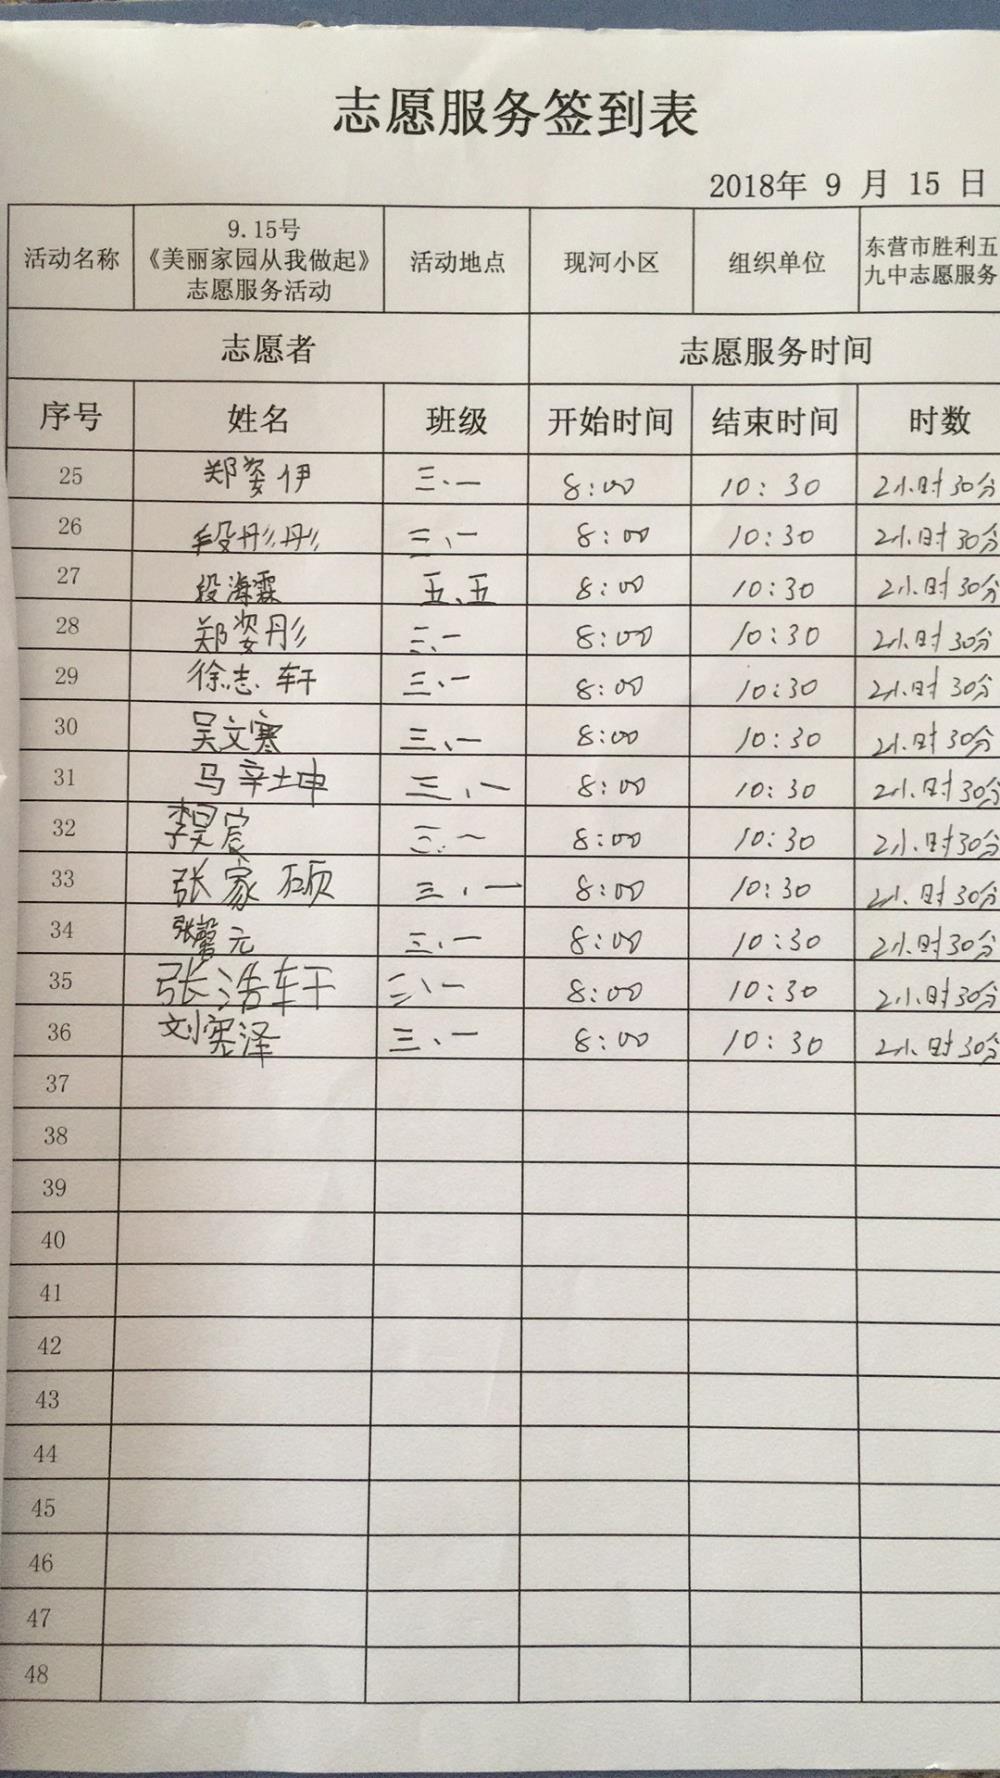 志愿服务签到表
2018年 9 月 15 日
活动名称 9.15号《美丽家园从我做起》志愿服务活动 活动地点 现河小区 组织单位 东营市胜利五九中志愿服务
志愿者 志愿服务时间
序号 姓名 班级 开始时间 结束时间 时数
25 郑姿伊 三、一 8:00 10:30 2小时30分
26 段彤彤 三、一 8:00 10:30 2小时30分
27 段海霖 五、五 8:00 10:30 2小时30分
28 郑姿彤 三、一 8:00 10:30 2小时30分
29 徐志轩 三、一 8:00 10:30 2小时30分
30 吴文寒 三、一 8:00 10:30 2小时30分
31 马辛坤 三、一 8:00 10:30 2小时30分
32 李昊宸 三、一 8:00 10:30 2小时30分
33 张家硕 三、一 8:00 10:30 2小时30分
34 张馨元 三、一 8:00 10:30 2小时30分
35 张浩轩 三、一 8:00 10:30 2小时30分
36 刘宪泽 三、一 8:00 10:30 2小时30分
37
38
39
40
41
42
43
44
45
46
47
48